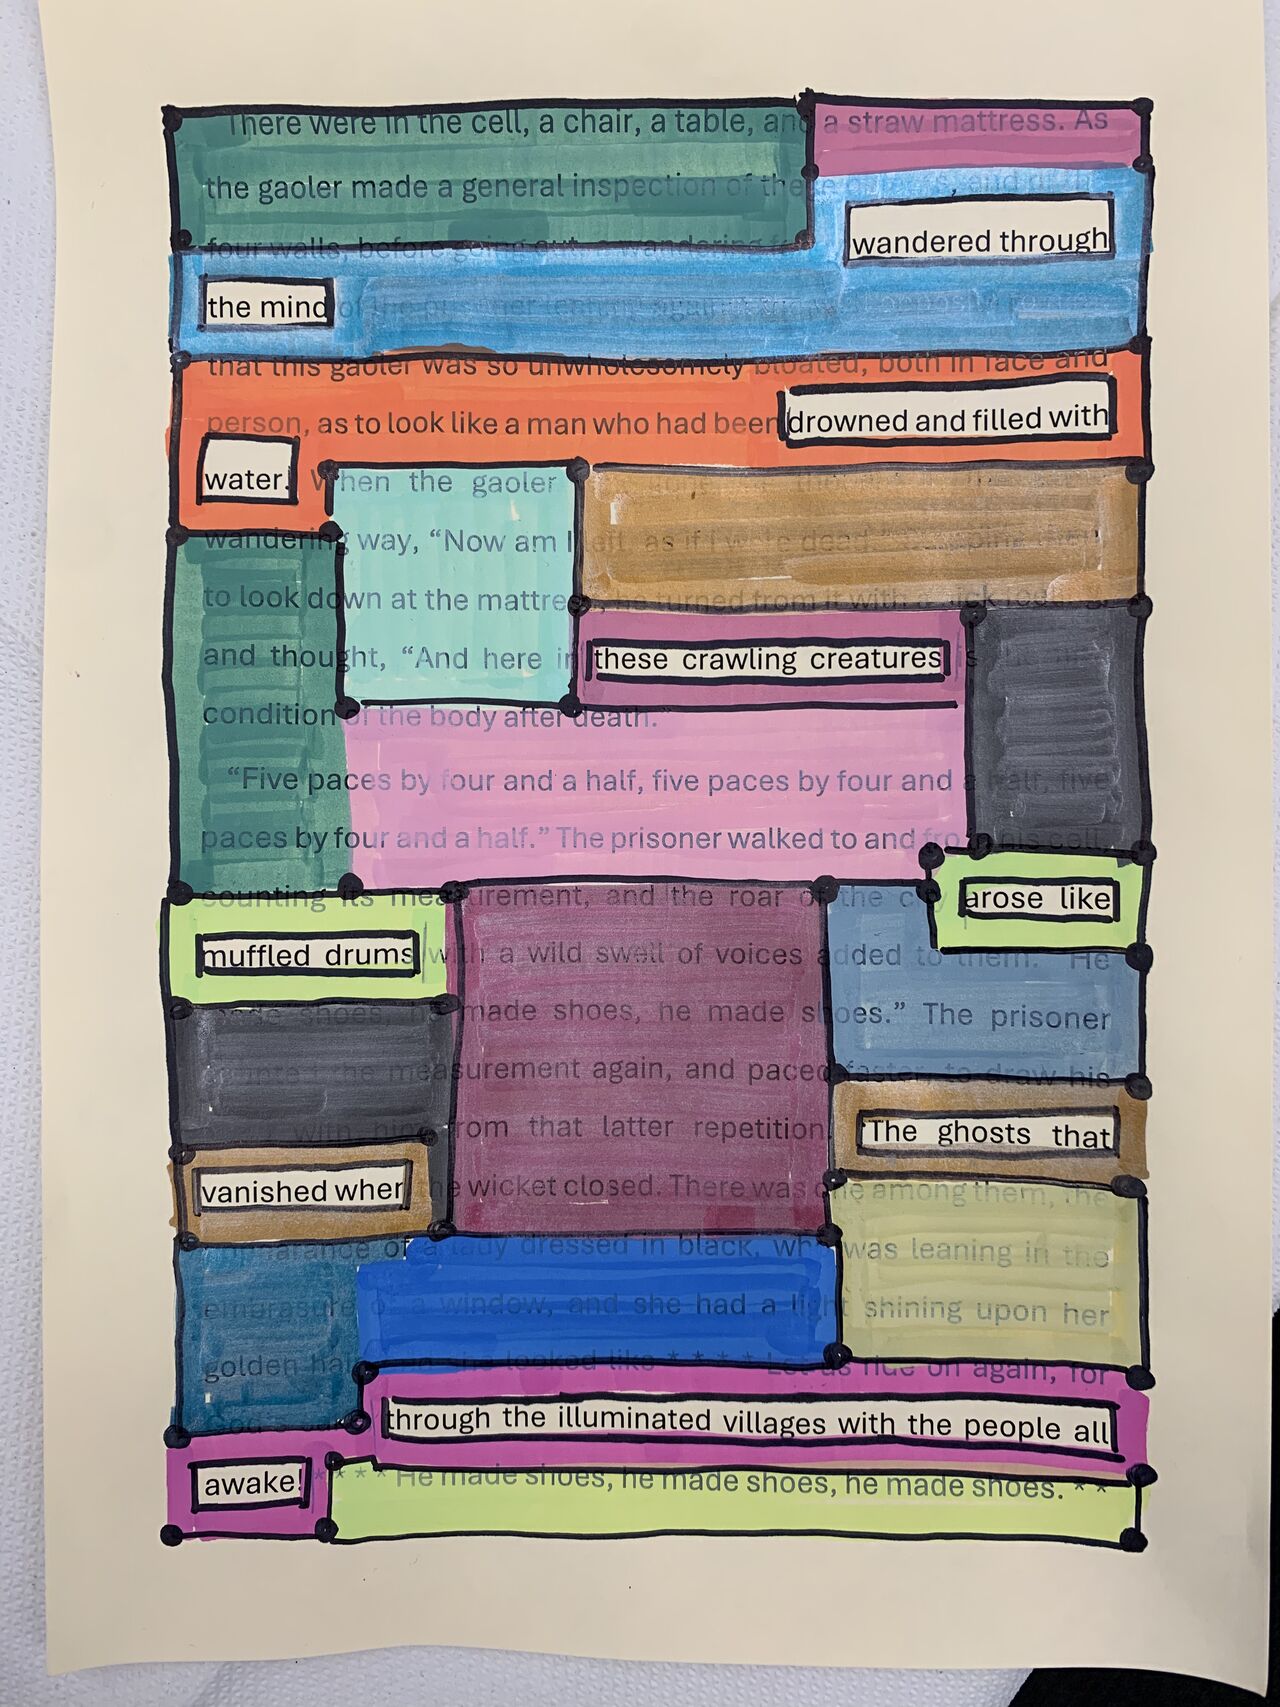 There were in the cell, a chair, a table, and a straw mattress. As
the gaoler made a general inspection of these objects, and of the
four walls, before going out, a wandering fancy wandered through
the mind of the prisoner leaning against the wall
that this gaoler was so unwholesomely bloated, both in face and
person, as to look like a man who had been drowned and filled with
water. When the gaoler
wandering way, “Now am I left, as if I were dead.” Stopping then
to look down at the mattress, he turned from it with a sick feeling,
and thought, “And here in these crawling creatures is
condition of the body after death.”
“Five paces by four and a half, five paces by four and a half, five
paces by four and a half.” The prisoner walked to and fro in his cell,
counting its measurement, and the roar of the city arose like
muffled drums with a wild swell of voices added to them. “He
made shoes, he made shoes, he made shoes.” The prisoner
counted the measurement again, and paced faster, to draw his
with him from that latter repetition. “The ghosts that
vanished when the wicket closed. There was one among them, the
appearance of a lady dressed in black, who was leaning in the
embrasure of a window, and she had a light shining upon her
golden hair, she looked like * * * * Let us ride on again, for
through the illuminated villages with the people all
awake! * * * * He made shoes, he made shoes, he made shoes. * *